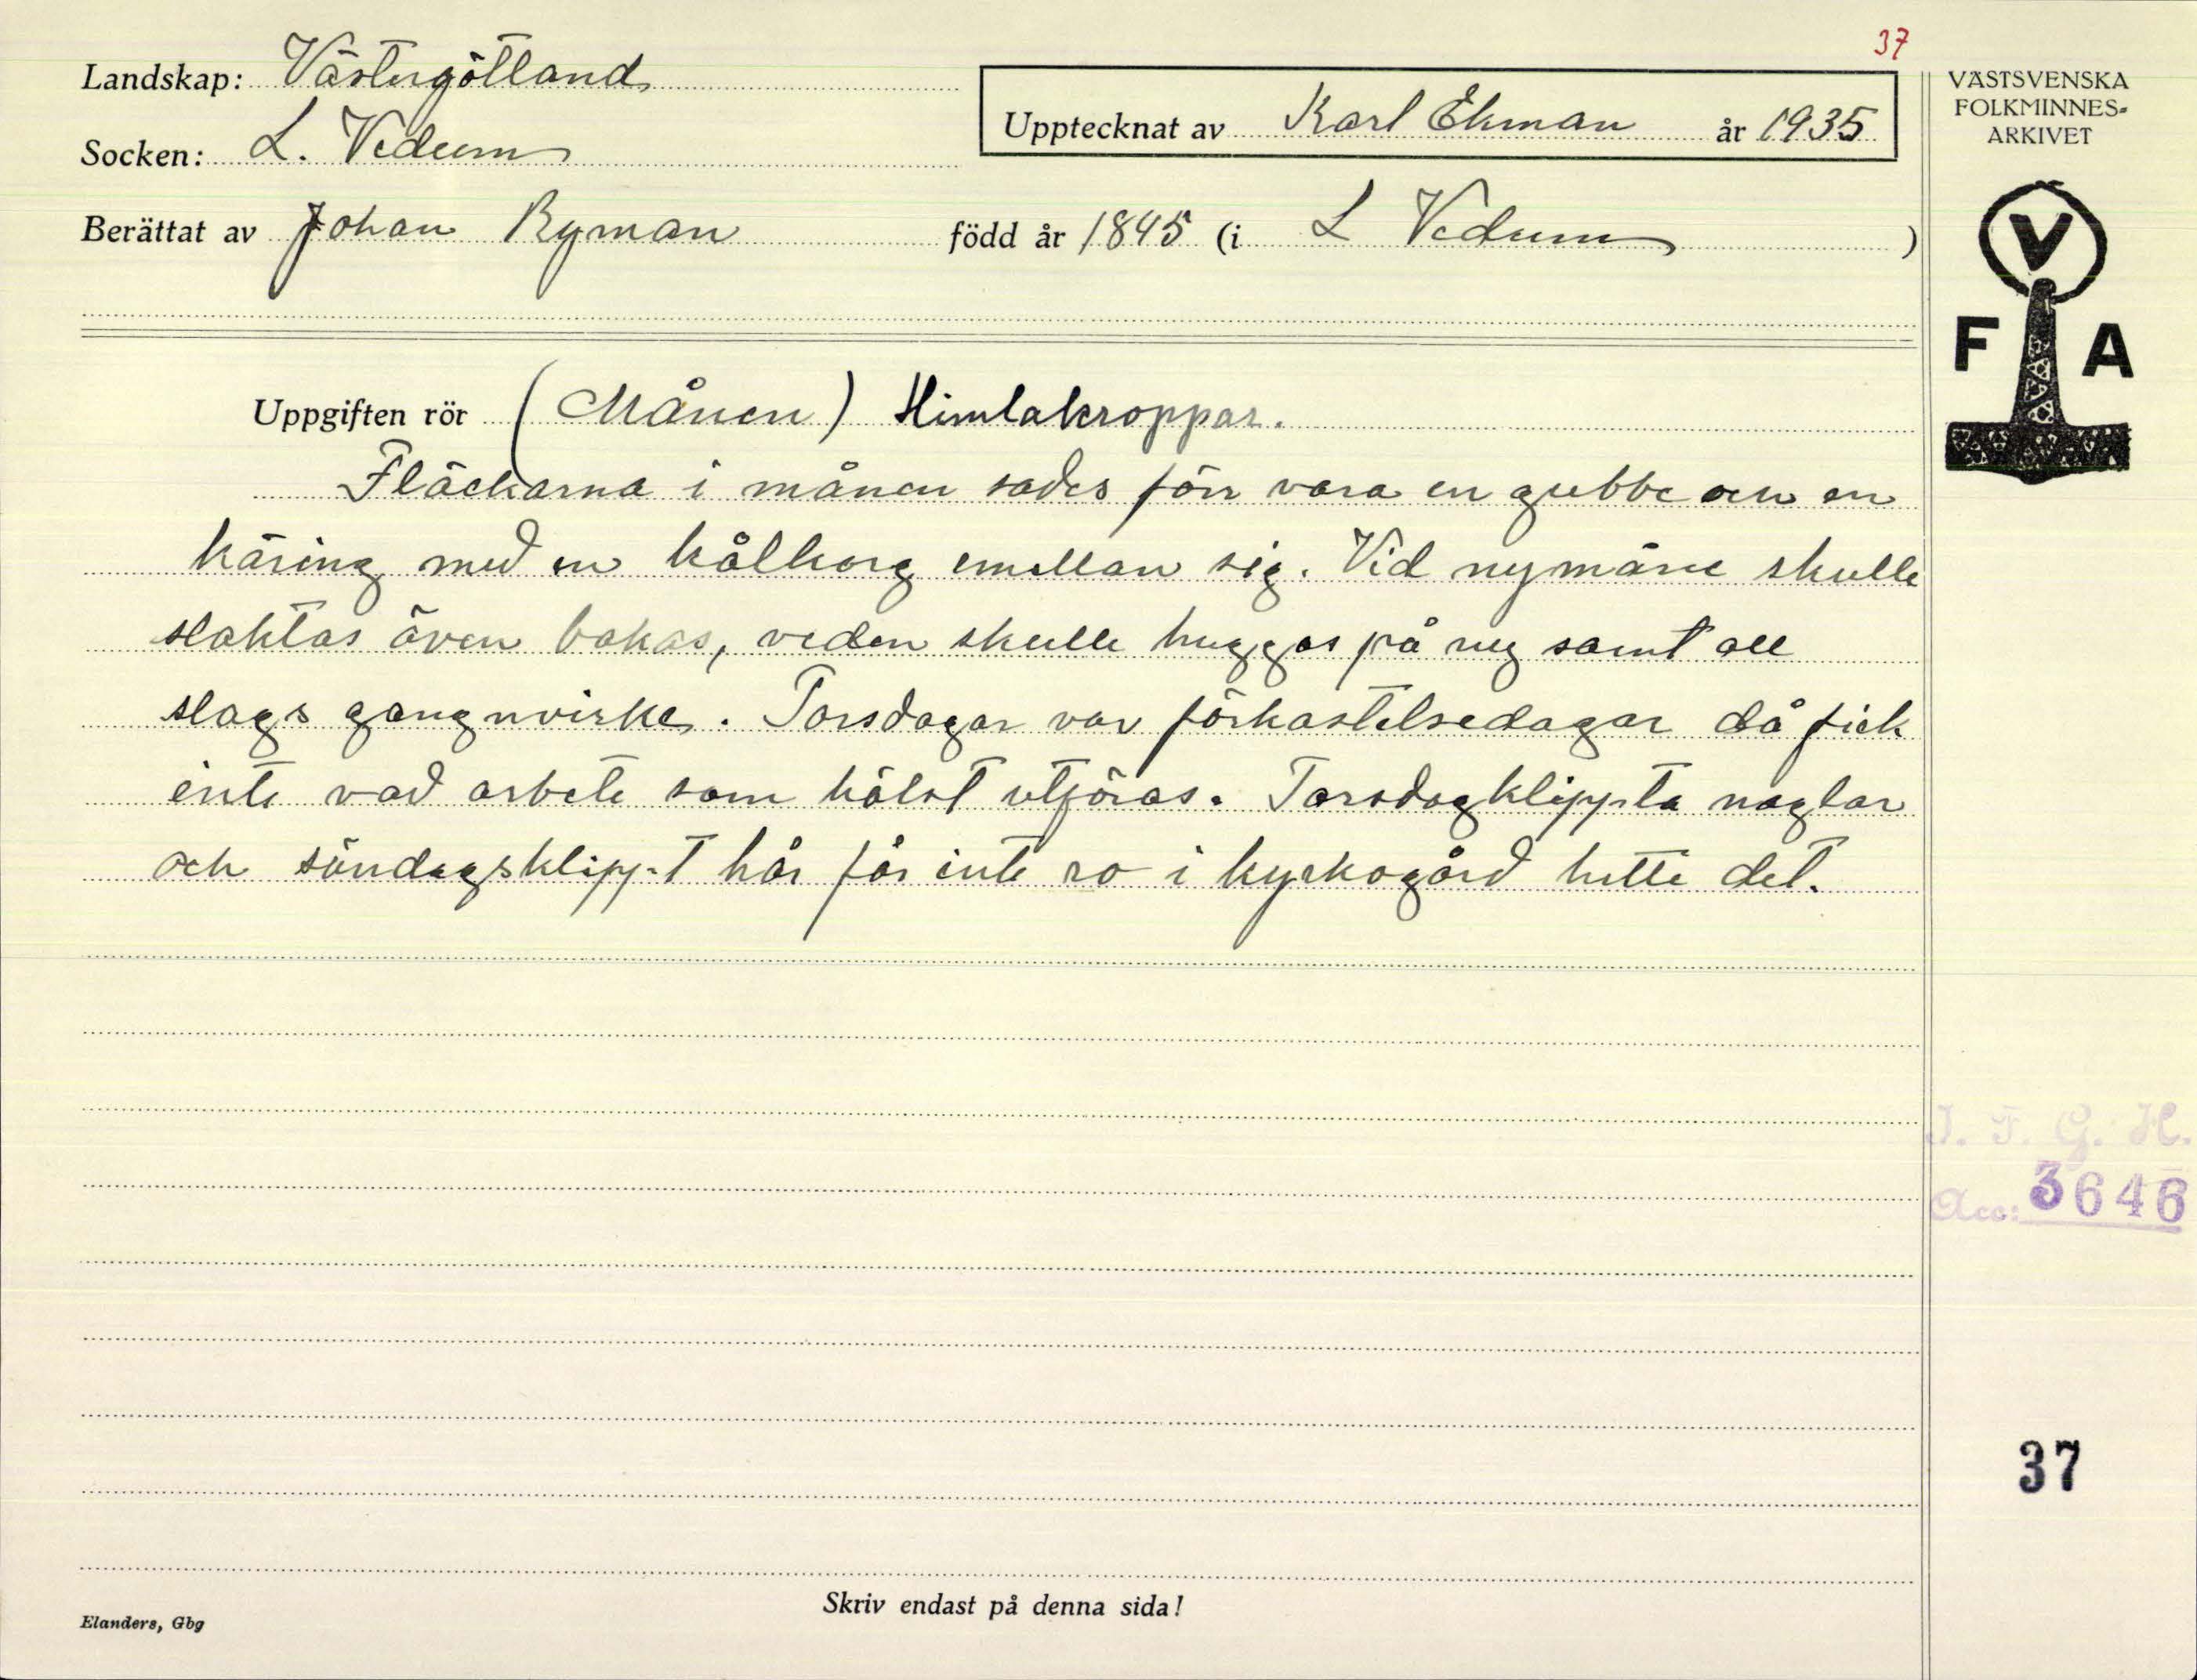 37
Landskap: Västergötland
Socken: L. Vedum
Upptecknat av Karl Ekman år 1935
Berättat av Johan Ryman född år 1845 (i L Vedum )
VÄSTSVENSKA
FOLKMINNES-
ARKIVET
V
F A
Uppgiften rör (Månen) Himlakroppar.
Fläckarna i månen sades förr vara en gubbe och en
käring med en kålkorg emellan sig. Vid nymåne skulle
slaktas även bakas, veden skulle huggas på ny samt all
slags gangnvirke. Torsdagar var förkastelsedagar då fick
inte vad arbete som hälst utföras. Torsdagklippta naglar
och söndagsklippt hår får inte ro i kyrkogård hette det.
I. F. G. H.
Acc: 3646
37
Skriv endast på denna sida!
Elanders, Gbg